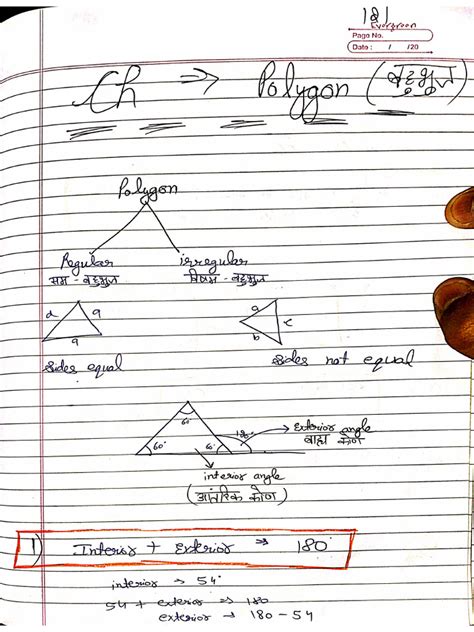 121
Evergreen
Page No.
Date : / /20
Ch ⇒ Polygon (बहुभुज)
Polygon
Regular irregular
सम - बहुभुज विषम - बहुभुज
a a a
a b c
sides equal sides not equal
60°
60° 6° 120°
→ Exterior angle
बाह्य कोण
interior angle
(आंतरिक कोण)
1) Interior + Exterior ⇒ 180°
interior → 54°
54 + exterior ⇒ 180
exterior → 180 - 54